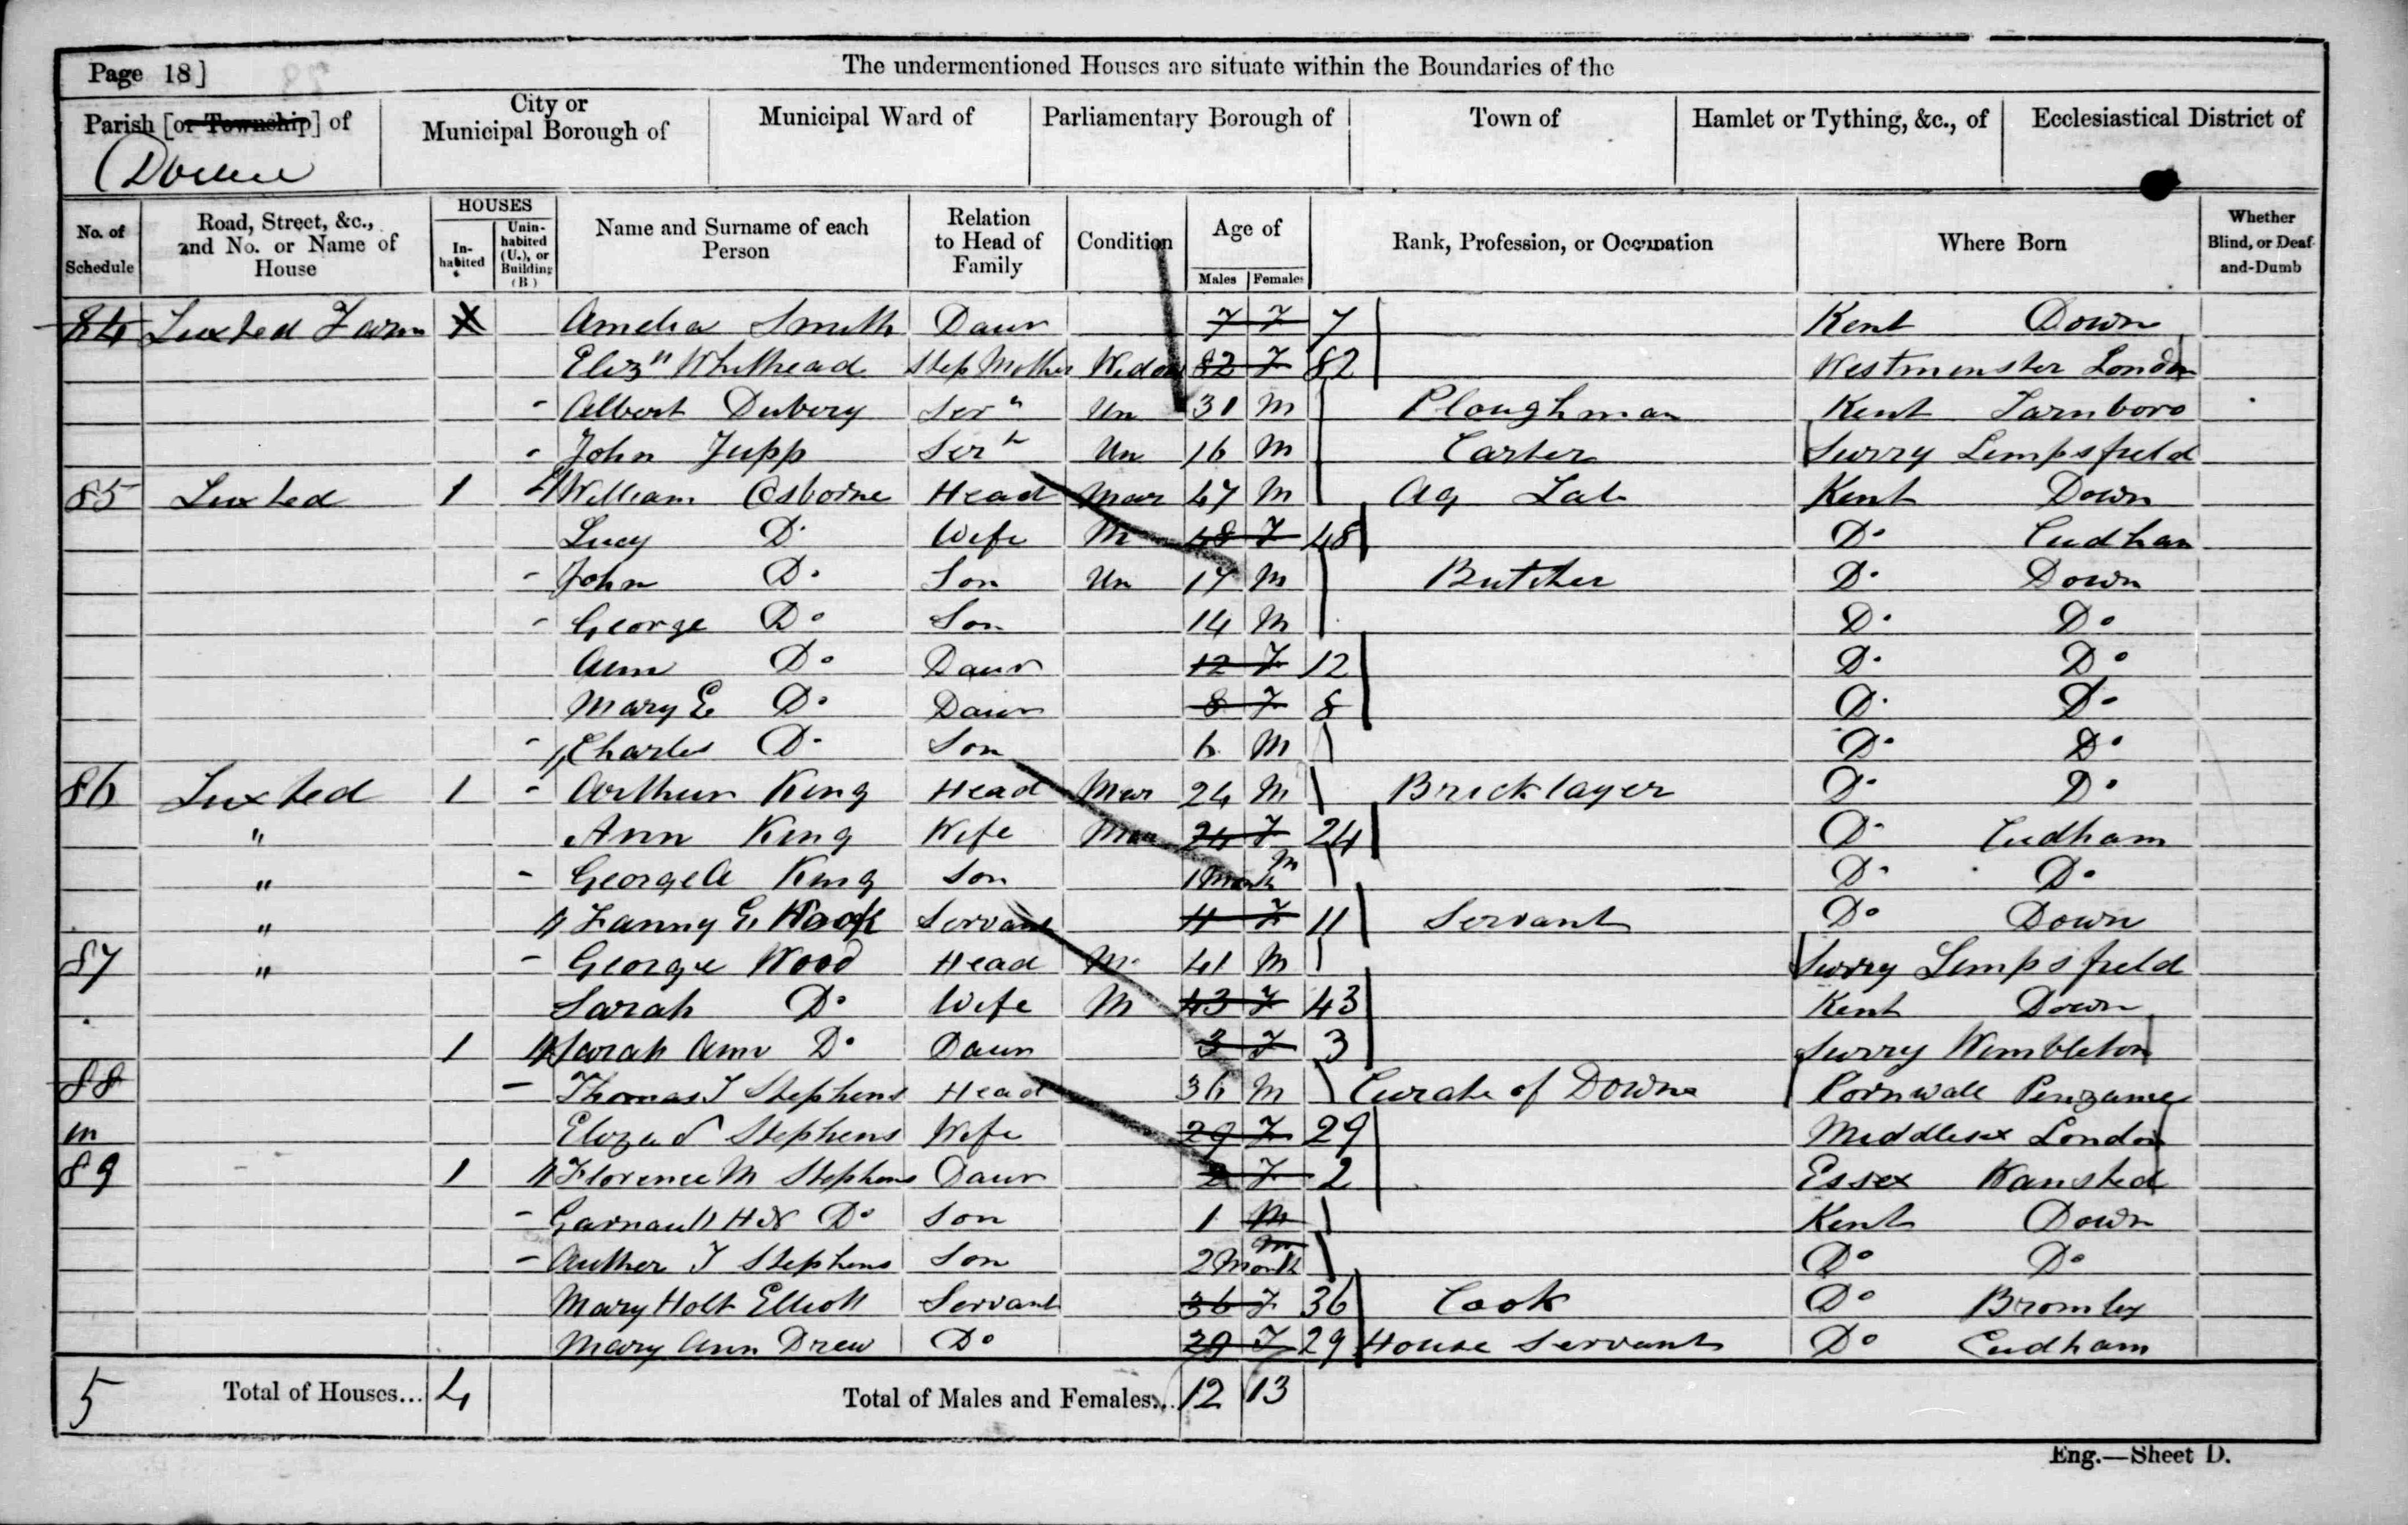 Page 18]
The undermentioned Houses are situate within the Boundaries of the
Parish [or Township] of
City or Municipal Borough of
Municipal Ward of
Parliamentary Borough of
Town of
Hamlet or Tything, &c., of
Ecclesiastical District of
Downe
No. of Schedule
Road, Street, &c., and No. or Name of House
HOUSES
In-habited
Unin-habited (U.), or Building (B)
Name and Surname of each Person
Relation to Head of Family
Condition
Age of
Males
Females
Rank, Profession, or Occupation
Where Born
Whether Blind, or Deaf-and-Dumb
84 Luxted Farm Amelia Smith Daur 7 F 7 Kent Down
Eliz'' Whithead Step Mother Widow 82 F 82 Westminster London
Albert Dubery Ser'' Un 31 M Ploughman Kent Farnboro
John Jupp Sert Un 16 M Carter Surry Limpsfield
85 Luxted 1 William Osborne Head Mar 47 M Ag Lab Kent Down
Lucy Do Wife M 48 F 48 Do Cudham
John Do Son Un 17 M Butcher Do Down
George Do Son 14 M Do Do
Ann Do Daur 12 F 12 Do Do
Mary E Do Daur 8 F 8 Do Do
Charles Do Son 6 M Do Do
86 Luxted 1 Arthur King Head Mar 24 M Bricklayer Do Do
" Ann King Wife Mar 24 F 24 Do Cudham
" George A King Son 1 Month M Do Do
" Fanny E Servant 11 F 11 Servant Do Down
87 " George Wood Head M 41 M Surry Limpsfield
Sarah Do Wife M 43 F 43 Kent Down
1 Sarah Ann Do Daur 3 F 3 Surry Wimbleton
88 Thomas J Stephens Head 36 M Curate of Downe Cornwall Penzance
in Stephens Wife 29 F 29 Middlesex London
89 1 Florence M Stephens Daur 2 F 2 Essex Wansted
Garnault Do Son 1 M Kent Down
Auther J Stephens Son 2 Month M Do Do
Mary Holt Elliott Servant 36 F 36 Cook Do Bromley
Mary Ann Drew Do 29 F 29 House Servant Do Cudham
5 Total of Houses... 4 Total of Males and Females... 12 13
Eng.—Sheet D.